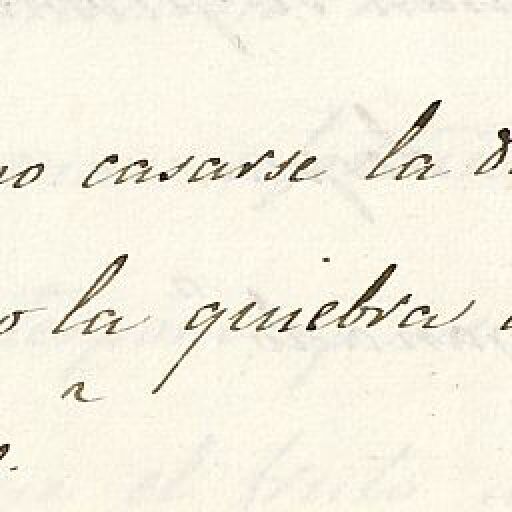 no casarse la
o la quiebra